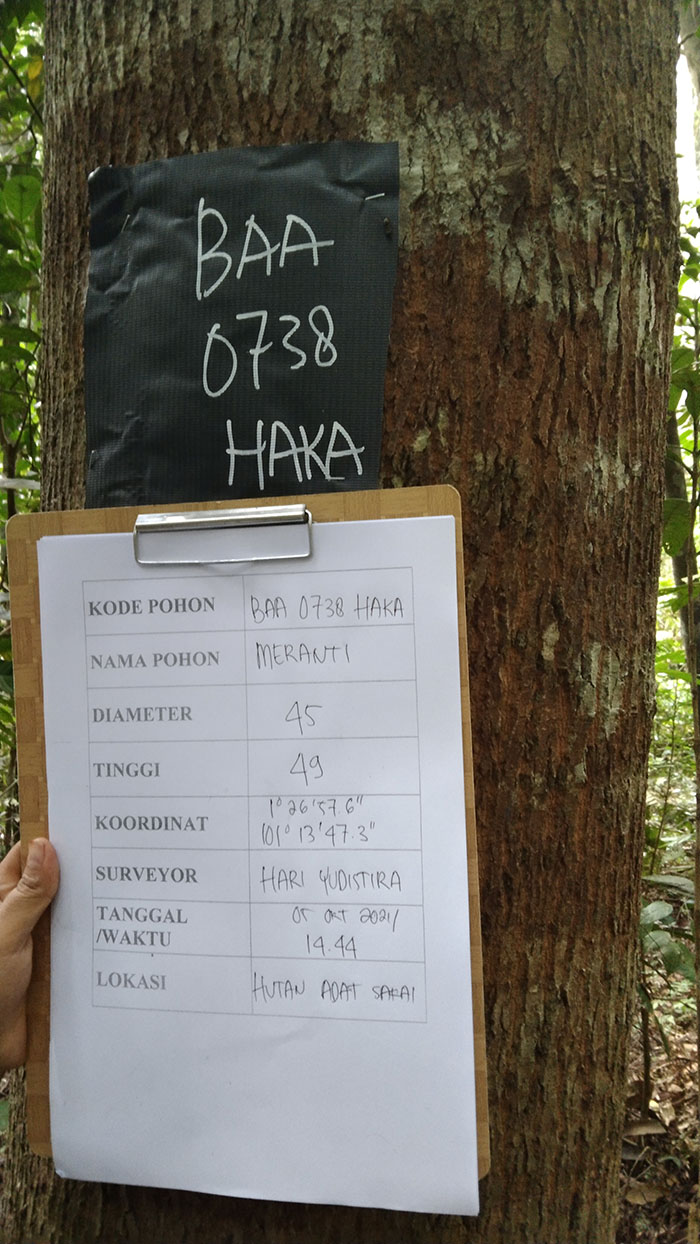 BAA
0738
HAKA
KODE POHON BAA 0738 HAKA
NAMA POHON MERANTI
DIAMETER 45
TINGGI 49
KOORDINAT 1° 26'57.6"
101° 13'47.3"
SURVEYOR HARI YUDISTIRA
TANGGAL 05 OKT 2021/
/WAKTU 14.44
LOKASI HUTAN ADAT SAKAI